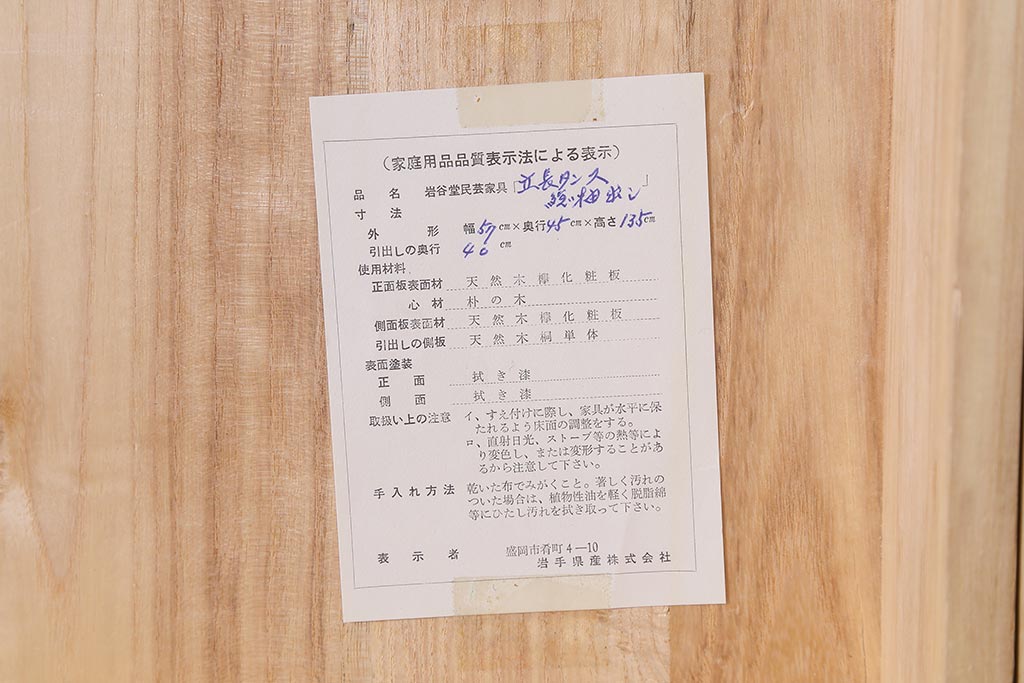 （家庭用品品質表示法による表示）
品名 岩谷堂民芸家具「立長タンス 総梱出し」
寸法
外形 幅57cm×奥行45cm×高さ135cm
引出しの奥行 40cm
使用材料
正面板表面材 天然木欅化粧板
心材 朴の木
側面板表面材 天然木欅化粧板
引出しの側板 天然木桐単体
表面塗装
正面 拭き漆
側面 拭き漆
取扱い上の注意 イ、すえ付けに際し、家具が水平に保
たれるよう床面の調整をする。
ロ、直射日光、ストーブ等の熱等によ
り変色し、または変形することがあ
るから注意して下さい。
手入れ方法 乾いた布でみがくこと。著しく汚れの
ついた場合は、植物性油を軽く脱脂綿
等にひたし汚れを拭き取って下さい。
表示者 盛岡市肴町4—10
岩手県産株式会社